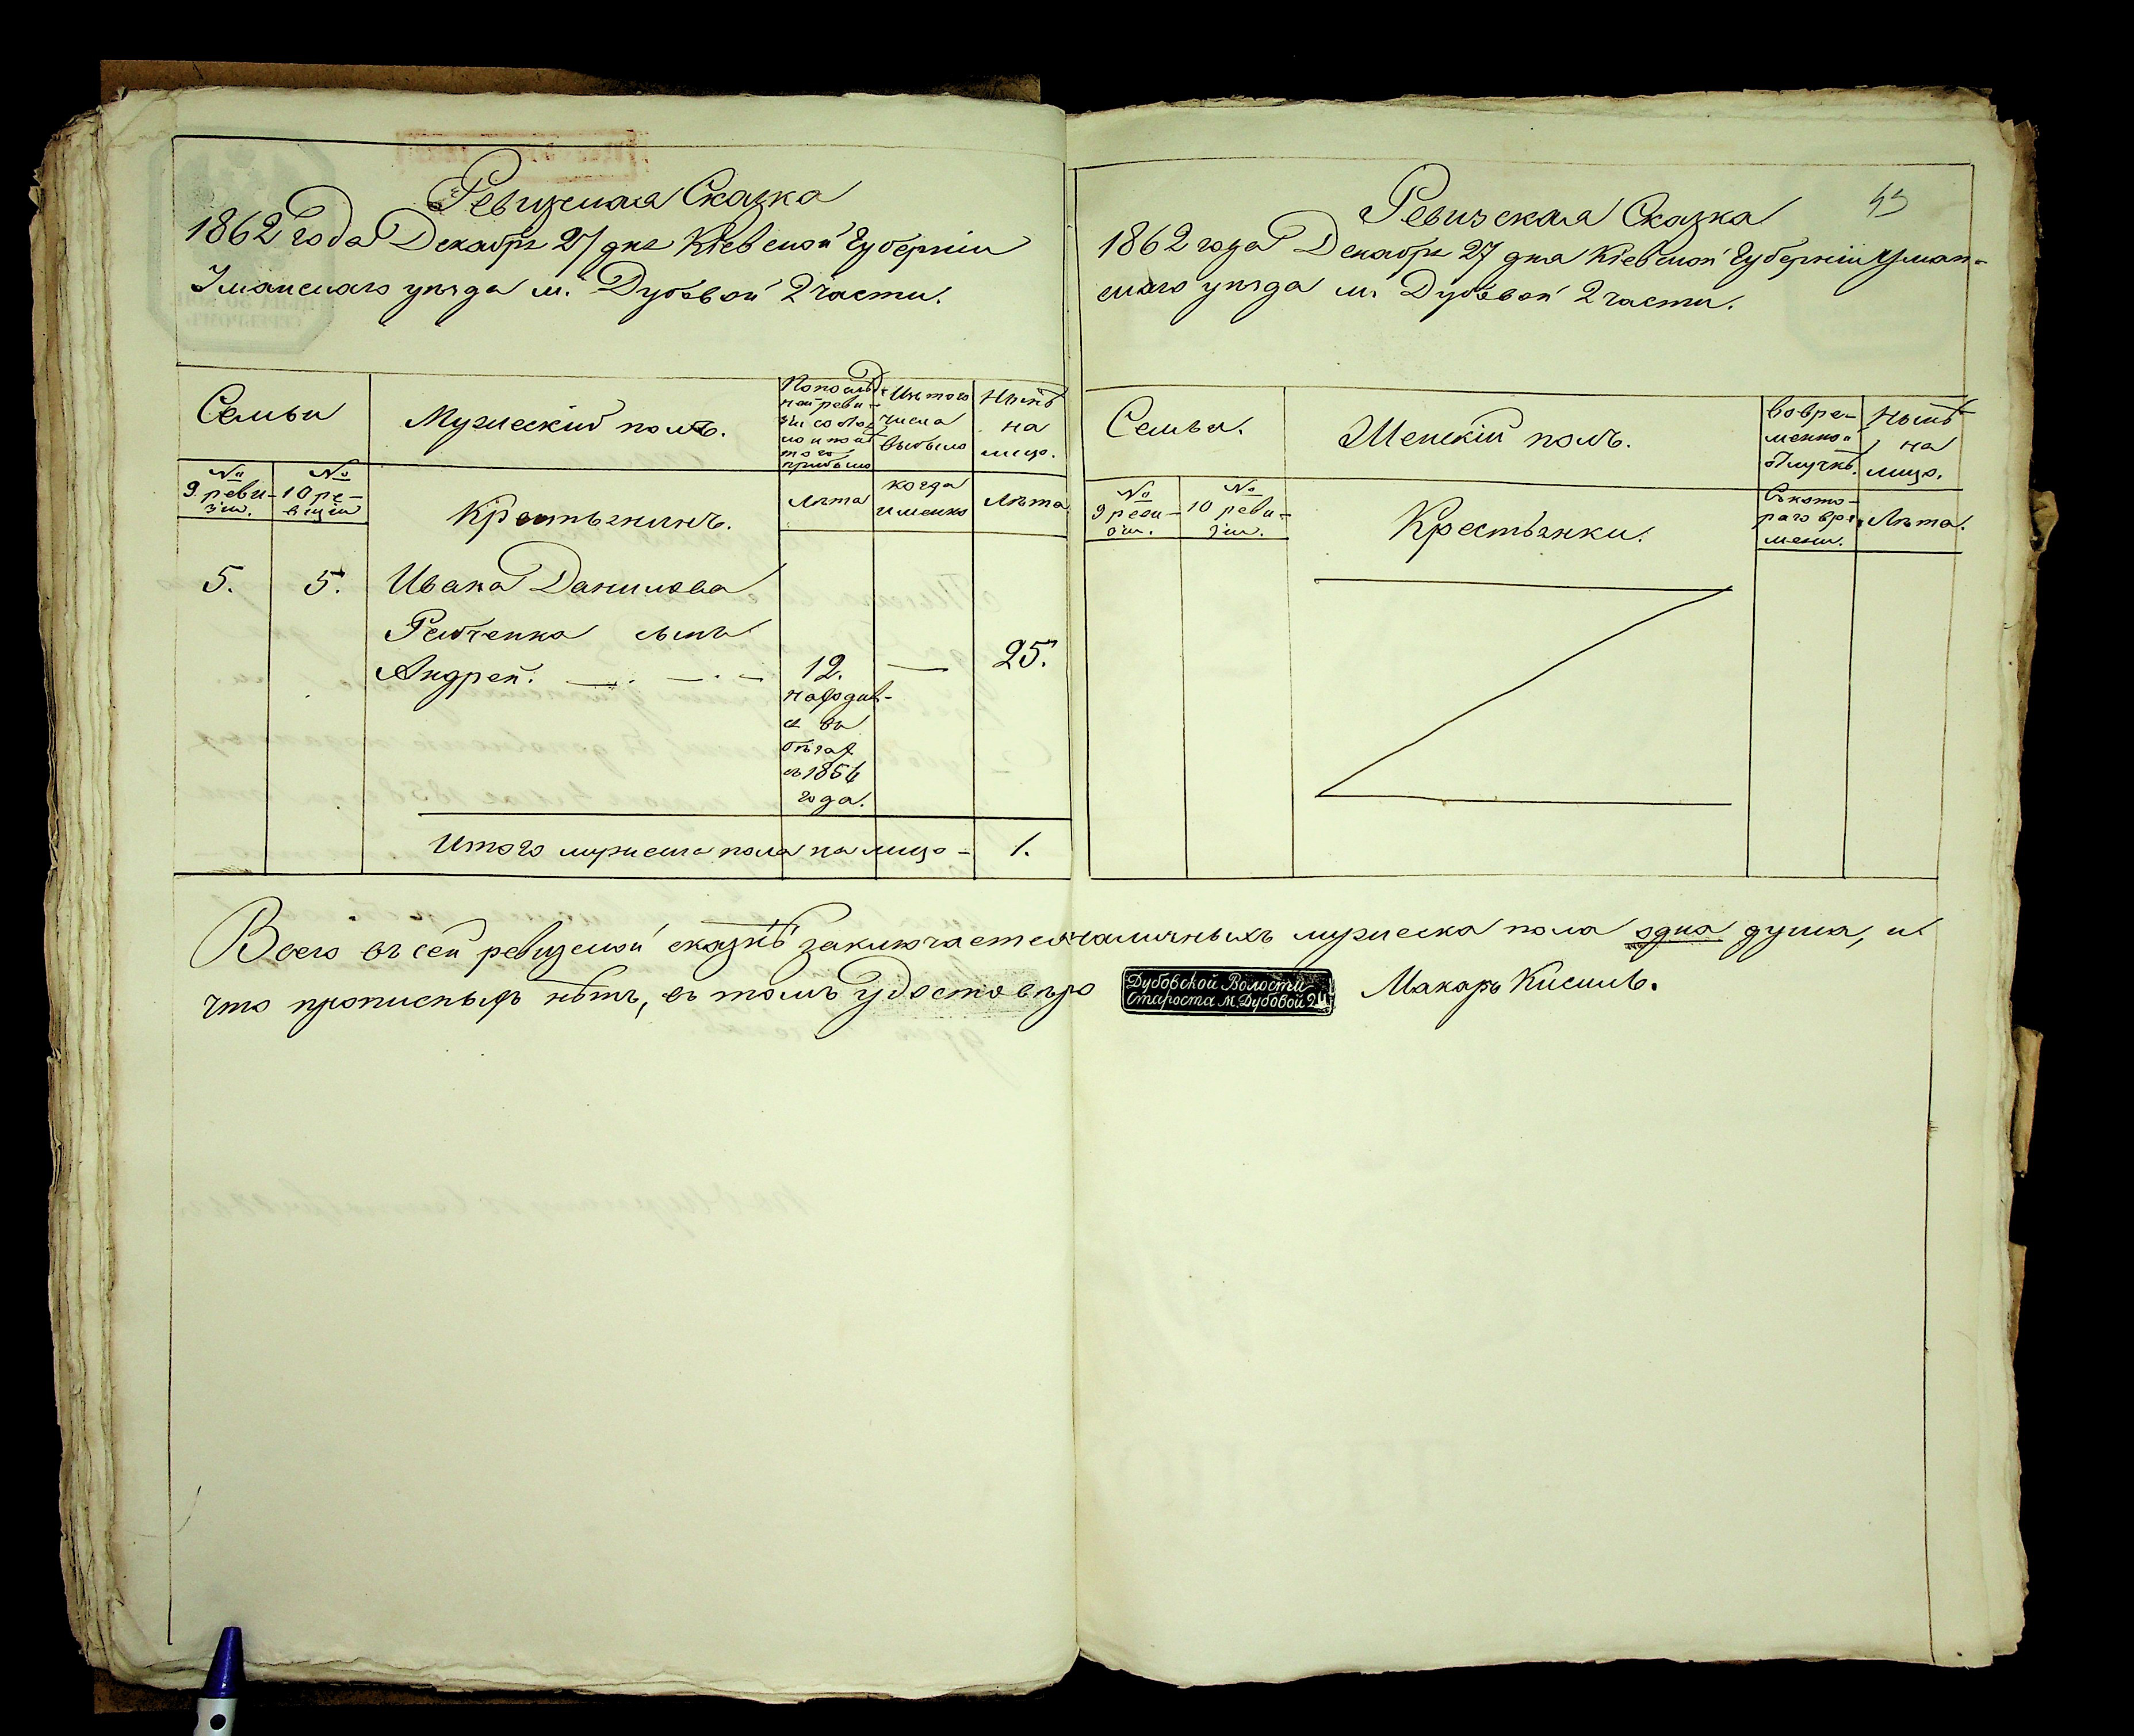 Ревизская Сказка
1862 года Декабря 27 дня Кіевской Губерніи
Уманскаго уѣзда м. Дубовой 2 части.
Семьи
Мужескій полъ.
По послѣд-
ней реви-
зіи состоя
ло и послѣ
того
прибыло
Изъ того
числа
выбыло
Нынѣ
на
лицо.
№
9 реви-
зіи.
№
10 ре-
визіи
Крестьянинъ.
Лѣта
когда
именно
Лѣта
5.
5.
Ивана Данилова
сынъ
Андрей.
12.
—
25.
находив-
ся въ
бѣгах
съ 1854
года.
Итого мужеска пола на лицо -
1.
Ревизская Сказка
43
1862 года Декабря 27 дня Кіевской Губерніи Уман-
скаго уѣзда м. Дубовой 2 части.
Семьи.
Женскій полъ.
Во вре-
менной
отлучкѣ.
Нынѣ
на
лицо.
№
9 реви-
зіи.
№
10 реви-
зіи.
Крестьянки.
Съ кото-
раго вре-
мени.
Лѣта.
Всего въ сей ревизской сказкѣ заключается наличныхъ мужеска пола одна душа, и
что прописныхъ нѣтъ, въ томъ удостовѣряю
Дубовской Волости
Староста м. Дубовой 2 ч
Макаръ